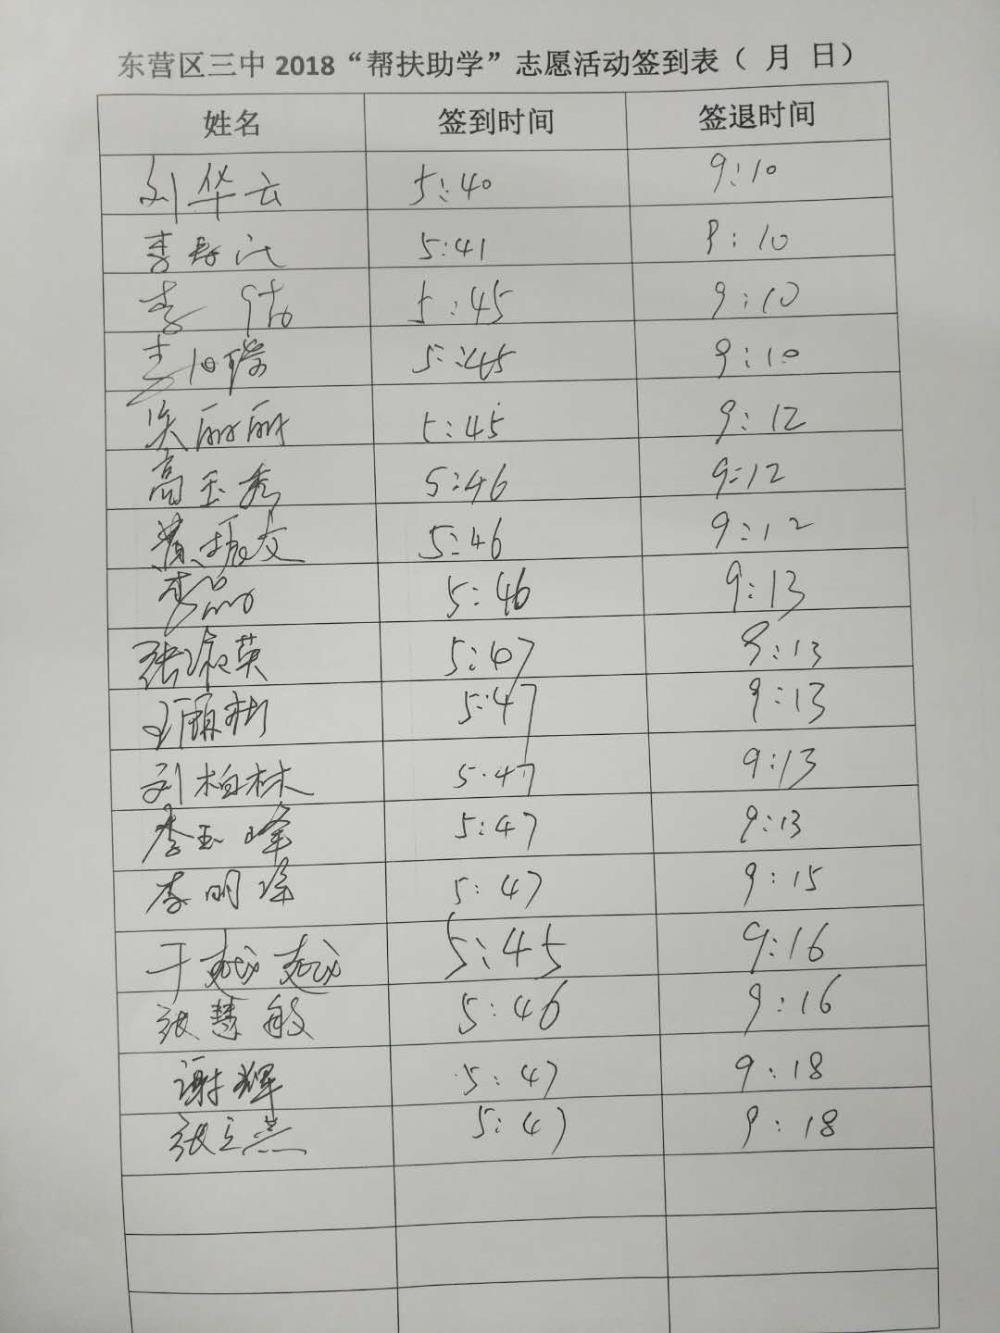 东营区三中2018“帮扶助学”志愿活动签到表（ 月 日）
姓名 签到时间 签退时间
刘华云 5:40 9:10
李 5:41 9:10
李 5:45 9:10
5:45 9:10
吴丽丽 5:45 9:12
高玉秀 5:46 9:12
黄振友 5:46 9:12
李 5:46 9:13
张 英 5:47 9:13
王 5:47 9:13
刘柏林 5:47 9:13
李玉峰 5:47 9:13
李明 5:47 9:15
于越越 5:45 9:16
张慧敏 5:46 9:16
谢辉 5:47 9:18
张立燕 5:47 9:18